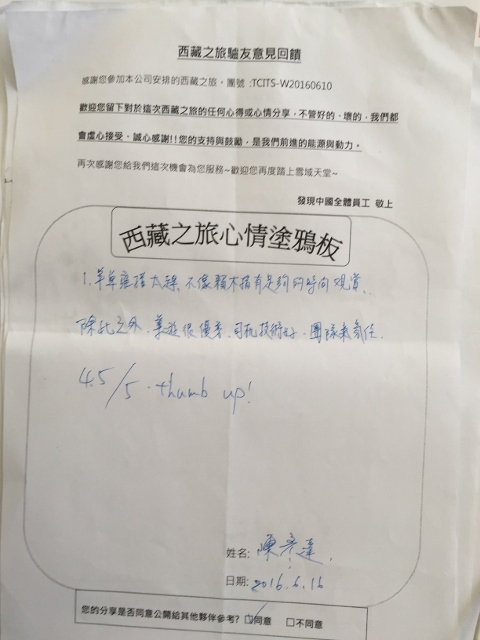 西藏之旅驢友意見回饋
感謝您參加本公司安排的西藏之旅。團號 :TCITS-W20160610
歡迎您留下對於這次西藏之旅的任何心得或心情分享。不管好的、壞的，我們都
會虛心接受、誠心感謝!!您的支持與鼓勵，是我們前進的能源與動力。
再次感謝您給我們這次機會為您服務~歡迎您再度踏上雪域天堂~
發現中國全體員工 敬上
西藏之旅心情塗鴉板
1. 羊卓雍措太趕、不像賴木措有足夠的時間觀賞、
除此之外、導遊很優秀、司机技術好、團隊氣氛佳
4.5/5 . thumb up!
姓名: 陳彥達
日期: 2016.6.16
您的分享是否同意公開給其他夥伴參考? ☑同意 □不同意